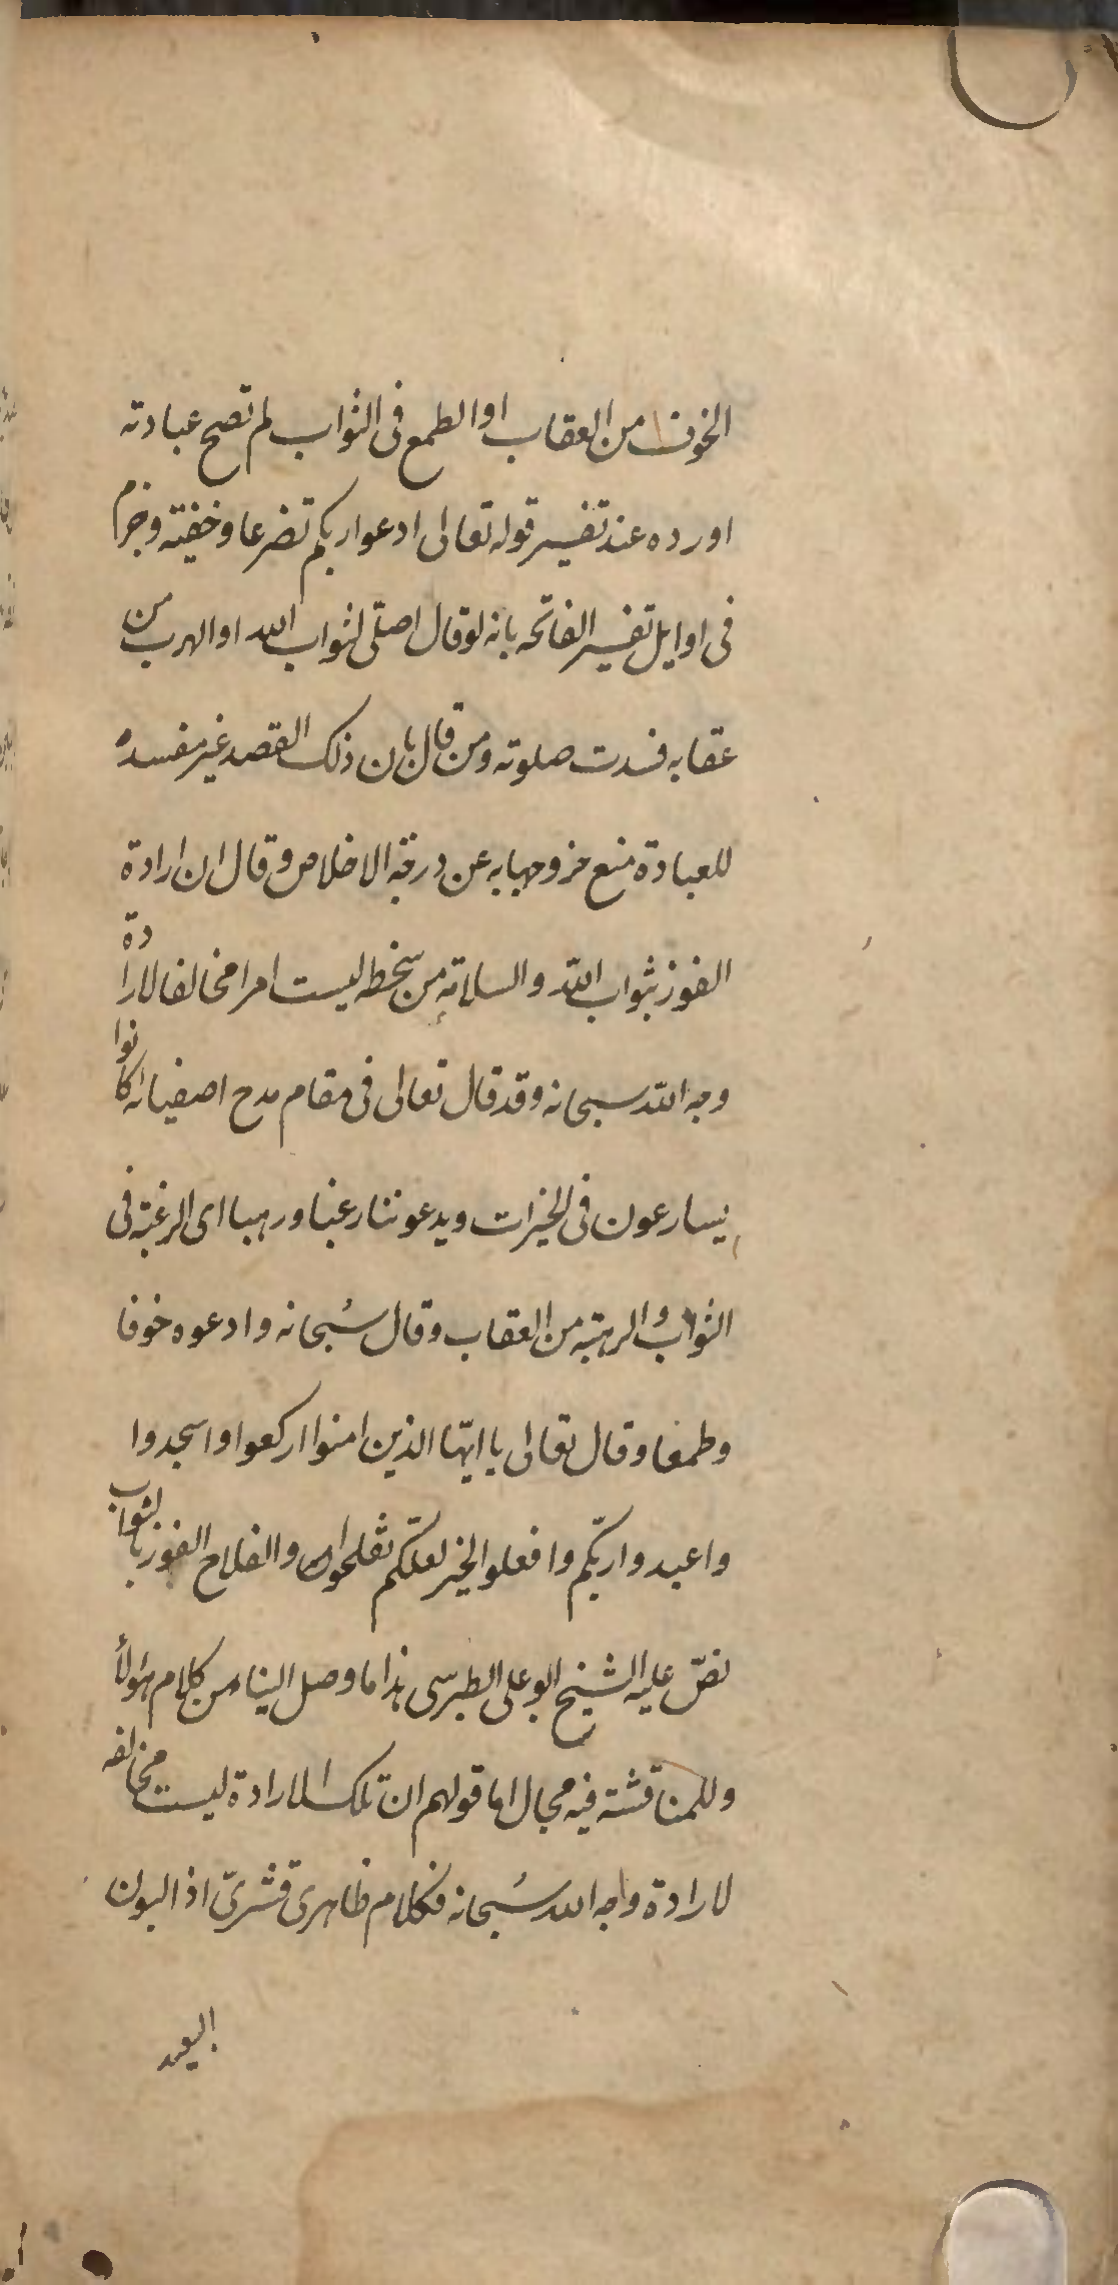 الخوف من العقاب او الطمع فى الثواب لم تصح عبادته
اورده عند تفسير قوله تعالى ادعوا ربكم تضرعا وخفيته وجزم
فى اوايل تفسير الفاتحه بانه لو قال اصلّى لثواب الله او الهرب من
عقابه فسدت صلوته ومن قال بان ذلك القصد غير مفسده
للعبادة منع خروجها به عن درجة الاخلاص وقال ان ارادة
الفوز بثواب الله والسلامة من سخطه ليست امرا مخالفا لارادة
وجه الله سبحانه وقد قال تعالى فى مقام مدح اصفيائه كانوا
يسارعون فى الخيرات ويدعوننا رغبا ورهبا اى الرغبة فى
الثواب والرهبة من العقاب وقال سُبحانه وادعوه خوفا
وطمعا وقال تعالى يا ايّها الذين امنوا اركعوا واسجدوا
واعبدوا ربّكم وافعلوا الخير لعلّكم تفلحون والفلاح الفوز بالثواب
نصّ عليه الشيخ ابو على الطبرسى هذا ما وصل الينا من كلام هؤلأ
وللمناقشة فيه مجال اما قولهم ان تلك الارادة ليست مخالفه
لارادة وجه الله سُبحانه فكلام ظاهرى قشرىّ اذ البون
البعيد